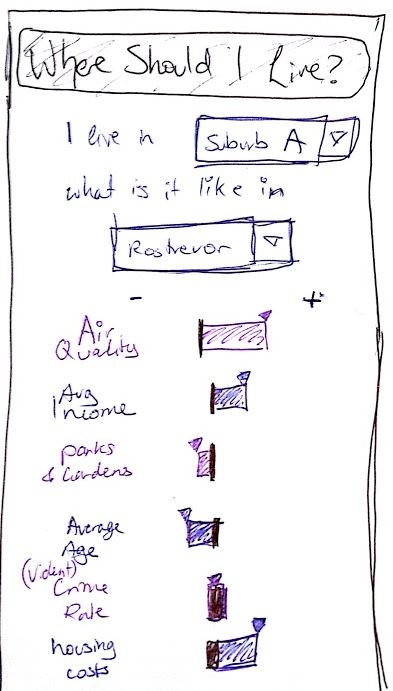 Where Should I Live?
I live in Suburb A
what is it like in
Rostrevor
- +
Air
Quality
Avg
Income
parks
& Gardens
Average
Age
(Violent)
Crime
Rate
housing
costs